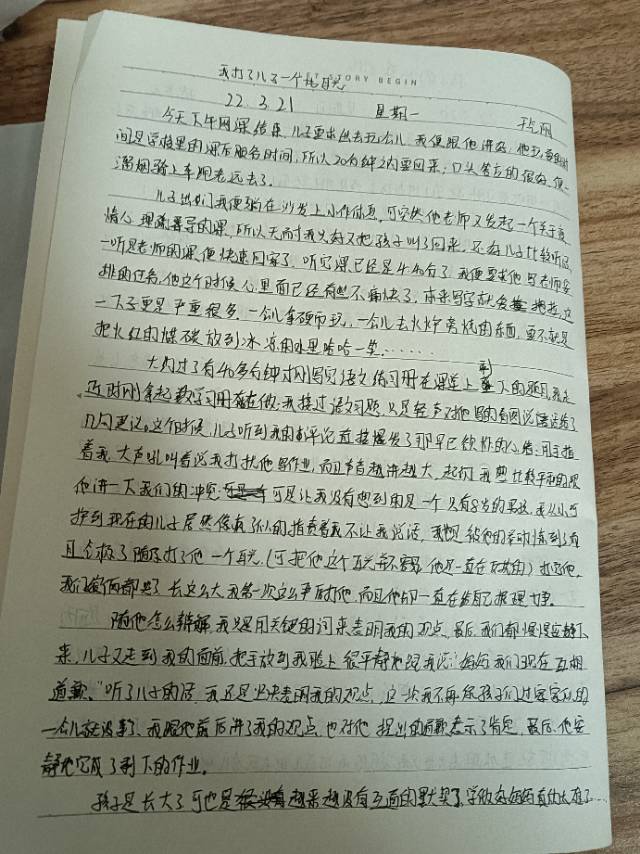 我打了儿子一个耳光
STORY BEGIN
22.3.21 星期一
今天下午网课结束，儿子要出去玩会儿，我便跟他讲好：他玩
间是学校里的课后服务时间，所以20分钟之内要回来；口头答应的很好，便
溜烟骑上车跑老远去了。
儿子出门我便躺在沙发上小作休息，可突然他老师又发起一个关于
情心理疏导的课，所以无奈我只好又把孩子叫了回来，还好儿子比较听话，
一听是老师的课便快速回家了。听完课已经是4:40分了，我便要求他写老师安
排的任务，他这个时候心里面已经有些不痛快了，本来写字就爱拖拉，这
一下子更是严重很多，一会儿拿硬币玩，一会儿去火炉旁烧的东西，要不就是
把火红的煤碳放到冰冻的水里哈哈一笑……
大约过了有40多分钟才刚写完语文练习册在课堂上剩下的题目，我走
近时刚拿起数学习册在做；我接过语文习题，只是轻声对他的看图说话
几句建议。这个时候，儿子听到我的评论直接爆发了那早已的心情；用手指
着我，大声吼叫着说我打扰他写作业，而且声音越讲越大，起初，我想比较平和的跟
他讲一下我们的冲突；可是让我没有想到的是一个只有8岁的男孩，我从小呵
护到现在的儿子居然像疯了似的指责着我不让我说话，我被他的举动
随后打了他一个耳光，（可把他这个耳光 他是一直在 的）打完他，
我们俩都哭了，长这么大我第一次这么严肃对他，而且他却一直在给自己据理力争。
随他怎么辩解，我只是用关键的词来表明我的观点，最后我们都慢慢安静下
来，儿子又走到我的面前，把手放到我脸上很平静地跟我说：“妈妈我们现在互相
道歉。”听了儿子的话，我还是坚决表明我的观点，这一次我不再像孩子们过家家似的
一会儿就没事了，我跟他前后讲了我的观点，也对他提出的道歉表示了肯定，最后，他安
静地完成了剩下的作业。
孩子是长大了，可也是越来越没有互面的默契了，学做好妈妈真的太难了…